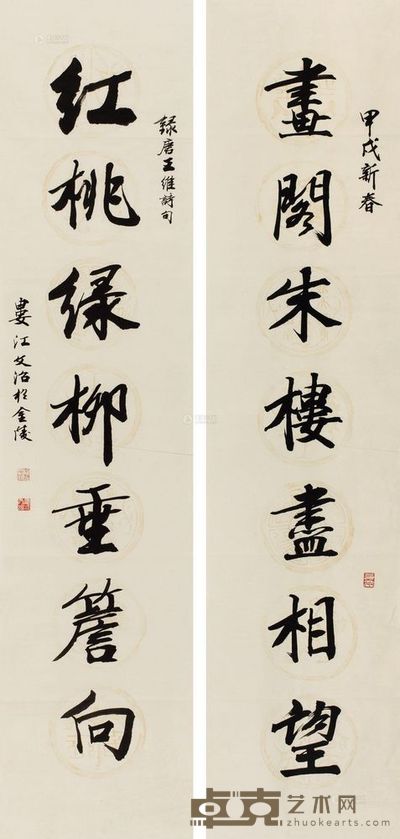 甲戌新春
畫閣朱樓盡相望
録唐王維詩句
紅桃緑柳垂簷向
婁江文治於金陵
卓克艺术网
zhuokearts.com